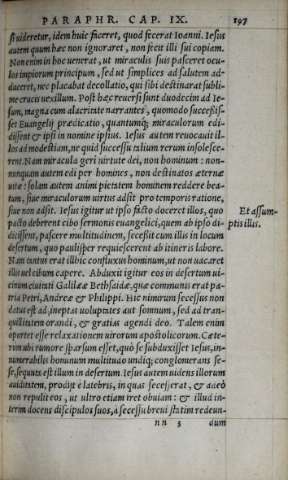 PARAPHR. CAP. IX. 197
si uideretur, idem huic faceret, quod fecerat Ioanni. Iesus
autem quum hæc non ignoraret, non fecit illi sui copiam.
Non enim in hoc uenerat, ut miraculis suis pasceret ocu-
los impiorum principum, sed ut simplices ad salutem ad-
duceret, nec placabat decollatio, qui sibi destinarat subli-
me crucis uexillum. Post hæc reuersi sunt duodecim ad Ie-
sum, magna cum alacritate narrantes, quomodo successis-
set Euangelij prædicatio, quantumq; miraculorum edi-
dissent & ipsi in nomine ipsius. Iesus autem reuocauit il-
los ad modestiam, ne quid successu talium rerum insolesce-
rent. Nam miracula geri uirtute dei, non hominum: non-
nunquam autem edi per homines, non destinatos æternæ
uitæ: solam autem animi pietatem hominem reddere bea-
tum, siue miraculorum uirtus adsit pro temporis ratione,
siue non adsit. Iesus igitur ut ipso facto doceret illos, quo
Et assum-
pacto deberent cibo sermonis euangelici, quem ab ipso di-
ptis illis.
dicissent, pascere multitudinem, secessit cum illis in locum
desertum, quo paulisper requiescerent ab itineris labore.
Nam tantus erat illhic confluxus hominum, ut non uacaret
illis uel cibum capere. Abduxit igitur eos in desertum ui-
cinum ciuitati Galilææ Bethsaidæ, quæ communis erat pa-
tria Petri, Andreæ & Philippi. Hic nimirum secessus non
datus est ad ineptas uoluptates aut somnum, sed ad tran-
quillitatem orandi, & gratias agendi deo. Talem enim
oportet esse relaxationem uirorum apostolicorum. Cæte-
rum ubi rumore sparsum esset, quò se subduxisset Iesus, in-
numerabilis hominum multitudo undiq; conglomerans se-
se, sequuta est illum in desertum. Iesus autem uidens illorum
auiditatem, prodijt è latebris, in quas secesserat, & adeò
non repulit eos, ut ultro etiam iret obuiam: & illud in-
terim docens discipulos suos, à secessu breui statim redeun-
nn 3 dum